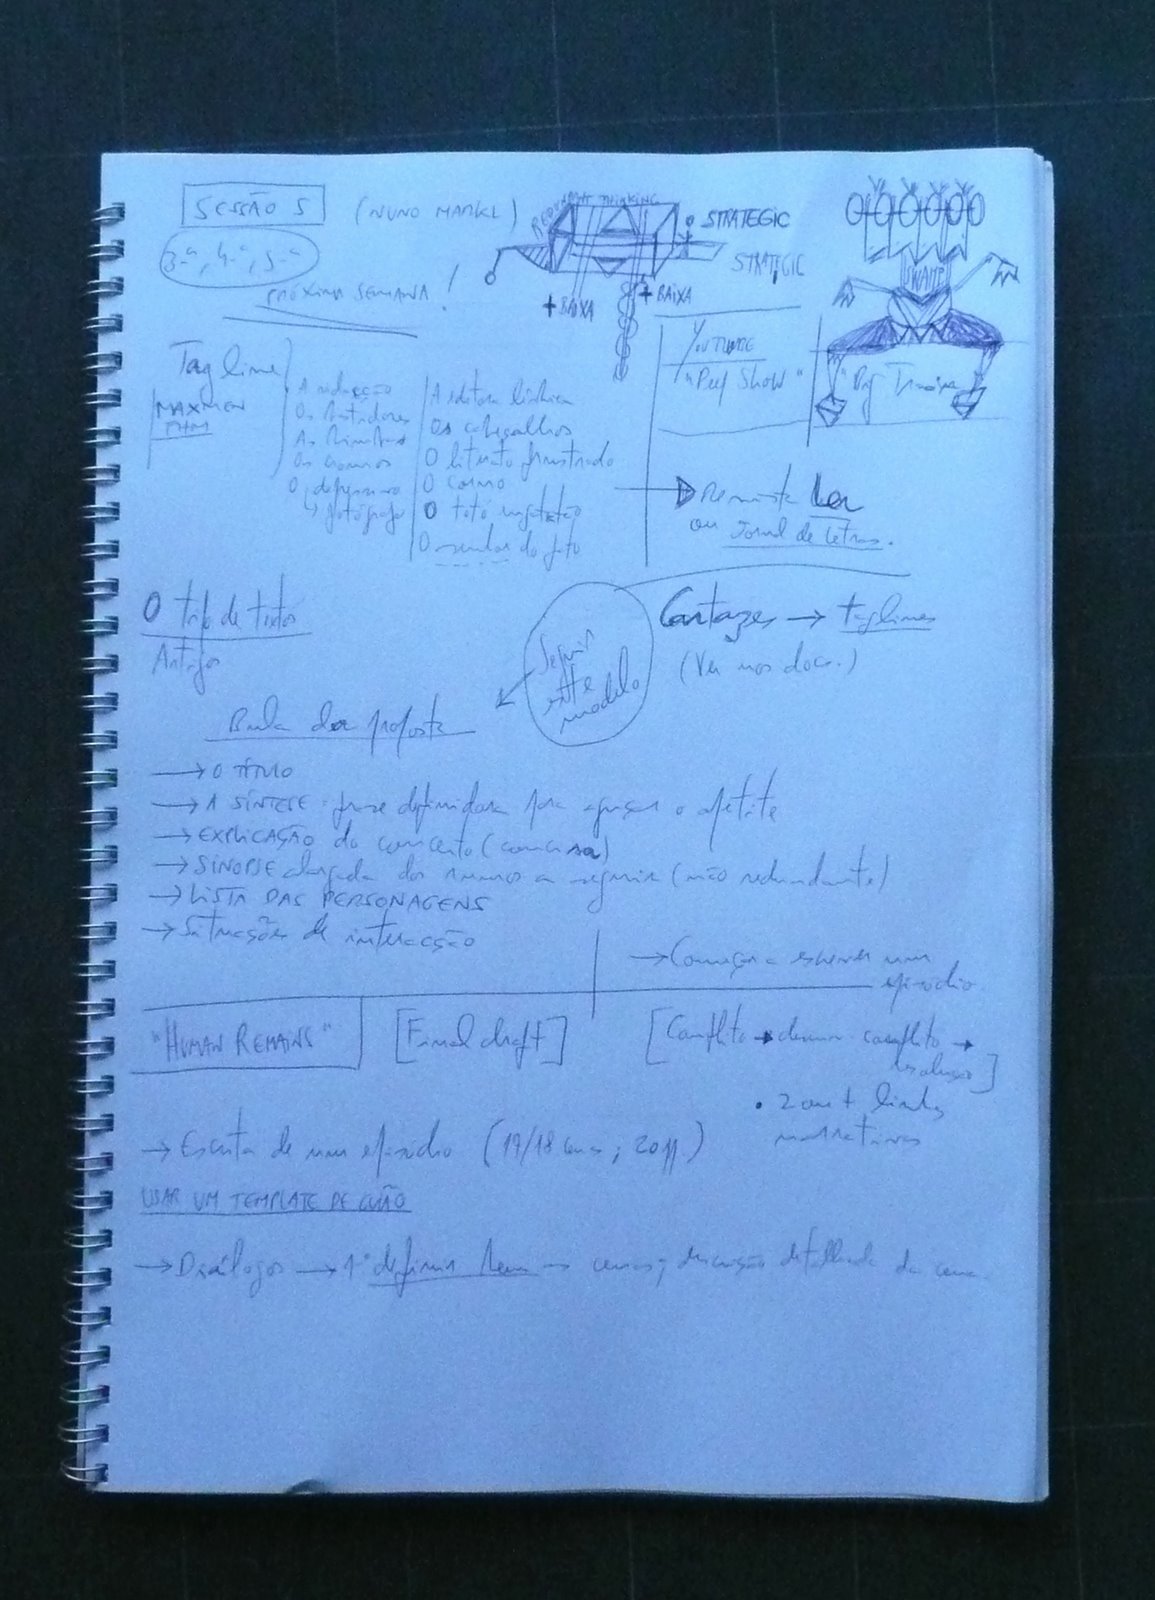 SESSÃO 5
(NUNO MARKL)
3.ª, 4.ª, 5.ª
PRÓXIMA SEMANA!
REDUNDANT THINKING
STRATEGIC
STRATEGIC
+ BAIXA
+ BAIXA
SWAMP
Tag line
MAXMEN
FHM
A redacção
Os
As
Os
O
↳ fotógrafo
A editora
Os cabeçalhos
O literato frustrado
O corno
O totó
O senhor do foto
YOUTUBE
"Peep Show"
→ Revista Ler
ou Jornal de Letras.
O tipo de textos
Artigos
Seguir
este
modelo
Cartazes → taglines
(Ver nos docs.)
Bula da proposta
→ O TÍTULO
→ A SÍNTESE - frase definidora para aguçar o apetite
→ EXPLICAÇÃO do conceito (concisa)
→ SINOPSE alargada dos rumos a seguir (não redundante)
→ LISTA DAS PERSONAGENS
→ Situações de interacção
→ Começar a escrever um
episódio.
"HUMAN REMAINS"
[Final draft]
[Conflito → conflito →
resolução]
• 2 ou + linhas
narrativas
→ Escrita de um episódio (17/18 cenas; 20 pp)
USAR UM TEMPLATE DE GUIÃO
→ Diálogos → 1º definir bem → cenas; descrição detalhada da cena.